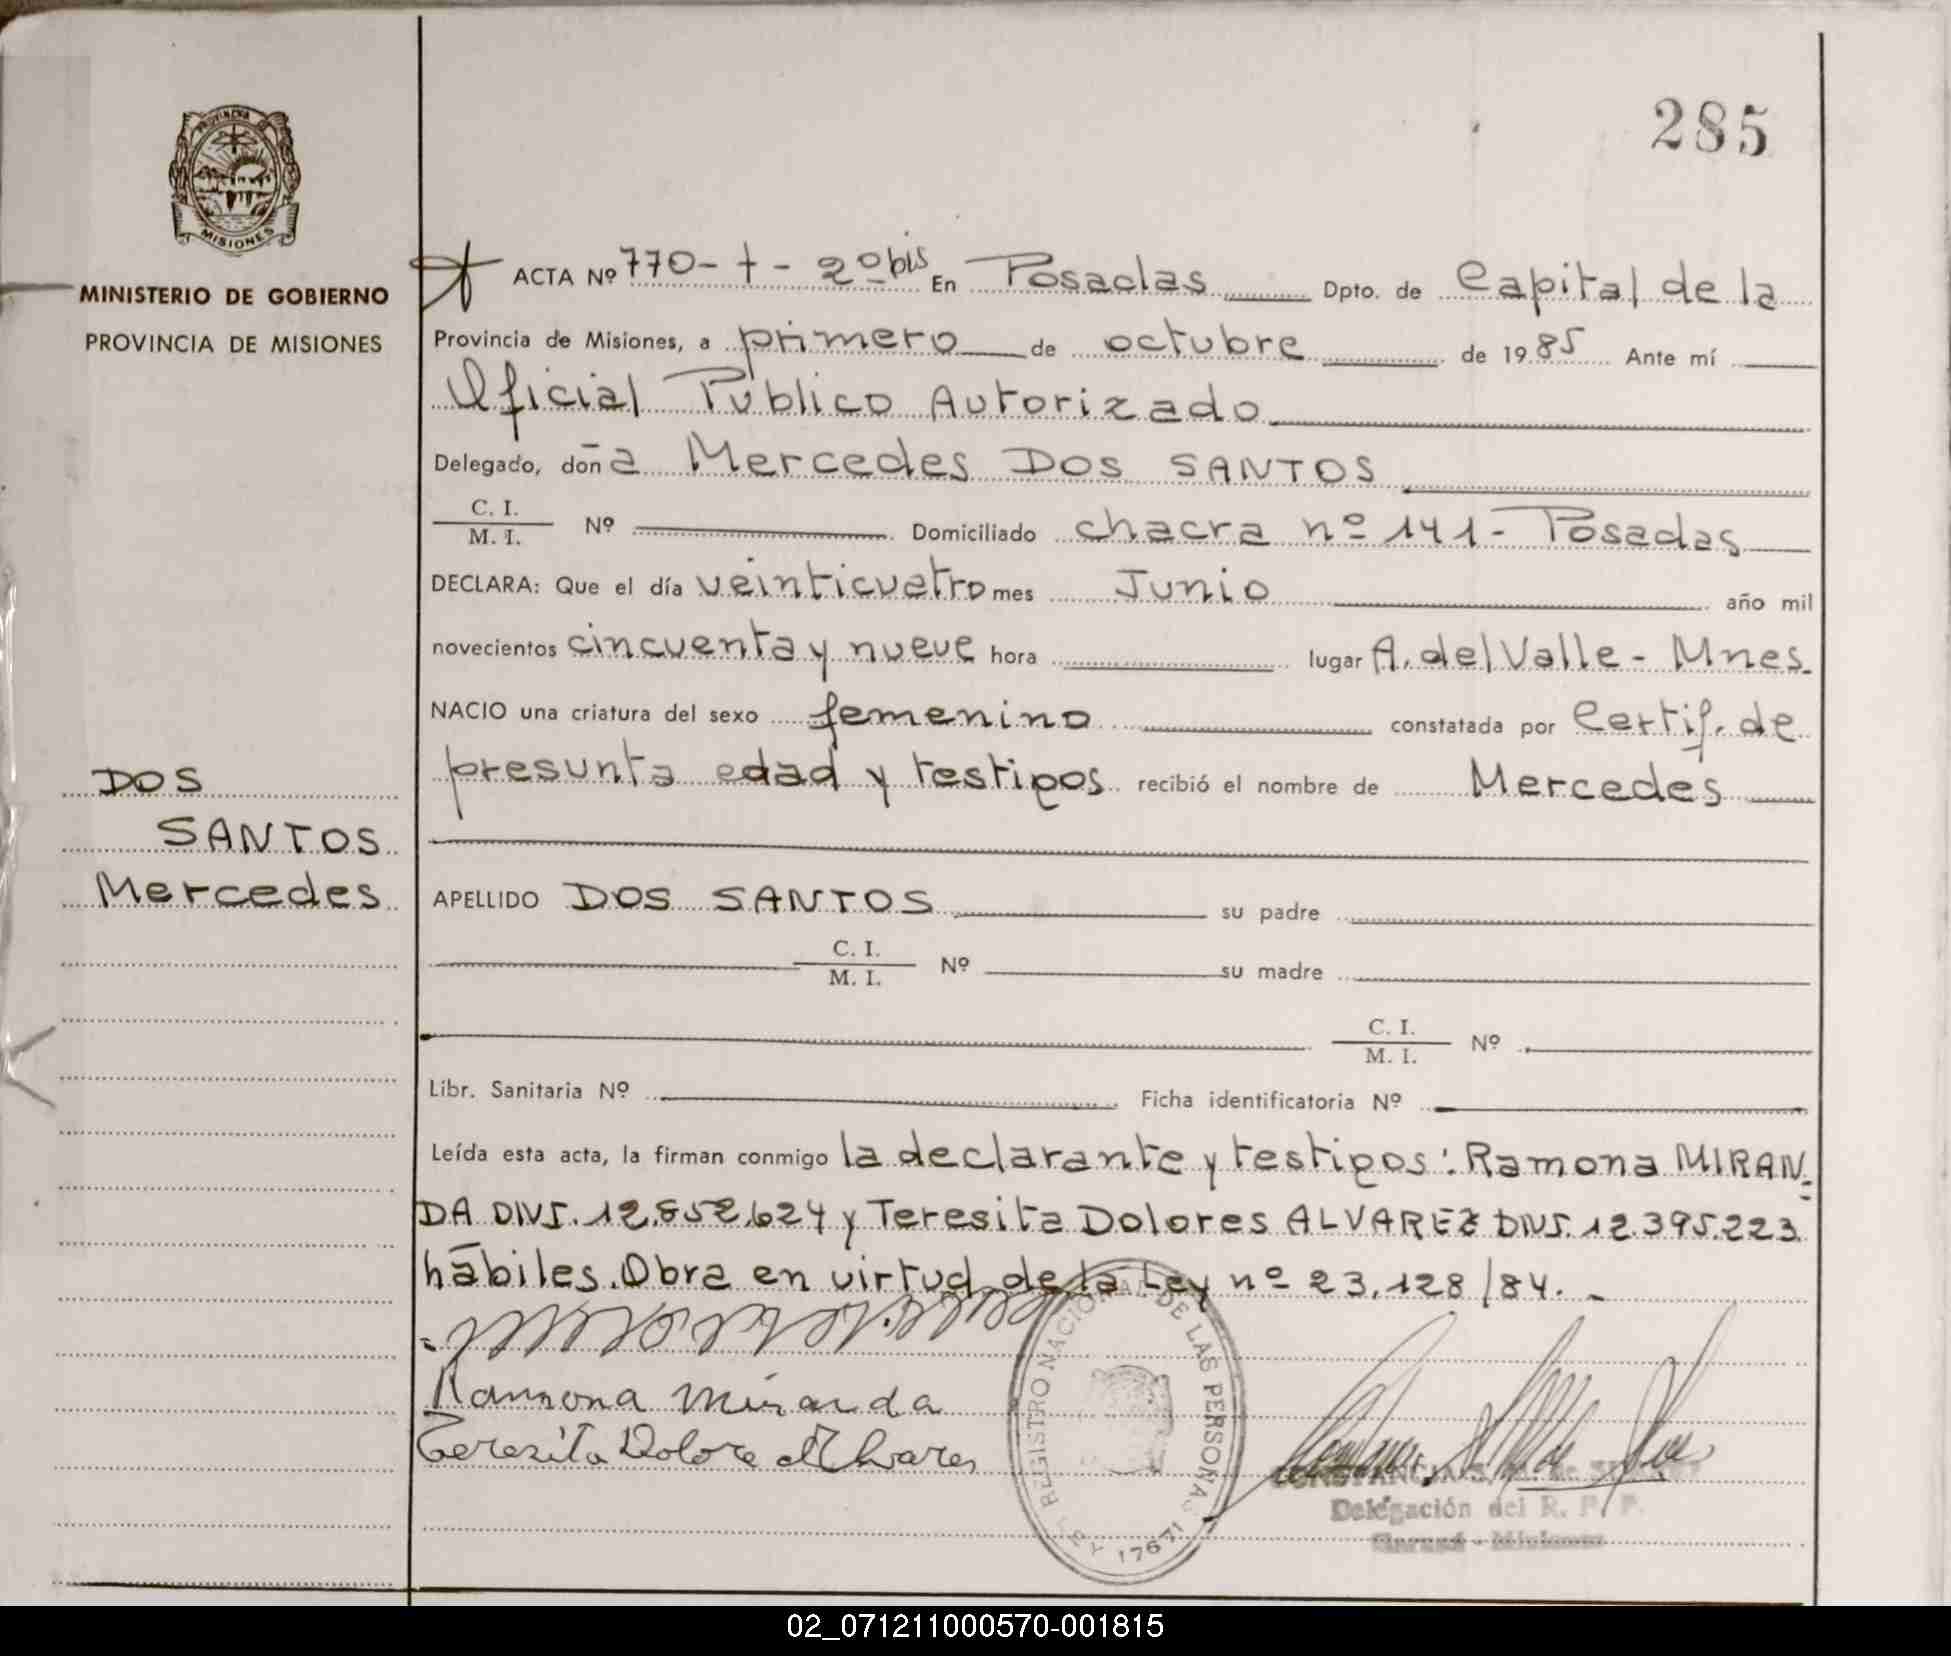 285
PROVINCIA DE
MISIONES
MINISTERIO DE GOBIERNO
PROVINCIA DE MISIONES
ACTA Nº 770-t-2º bis En Posadas Dpto. de Capital de la
Provincia de Misiones, a primero de octubre de 1985 Ante mí
Oficial Público Autorizado
Delegado, doña Mercedes DOS SANTOS
C. I.
M. I. Nº Domiciliado chacra nº 141 - Posadas
DECLARA: Que el día veinticuatro mes Junio año mil
novecientos cincuenta y nueve hora lugar A. del Valle - Mnes.
NACIO una criatura del sexo femenino constatada por Certif. de
presunta edad y testigos recibió el nombre de Mercedes
DOS
SANTOS
Mercedes
APELLIDO DOS SANTOS su padre
C. I.
M. I. Nº su madre
C. I.
M. I. Nº
Libr. Sanitaria Nº Ficha identificatoria Nº
Leída esta acta, la firman conmigo la declarante y testigos: Ramona MIRAN-
DA DNI. 12.852.624 y Teresita Dolores ALVAREZ DNI. 12.395.223
hábiles. Obra en virtud de la Ley nº 23.128/84. -
Ramona Miranda
Teresita Dolore Alvares
REGISTRO NACIONAL DE LAS PERSONAS
LEY 17671
Delegación del R. P. P.
Misiones
02_071211000570-001815